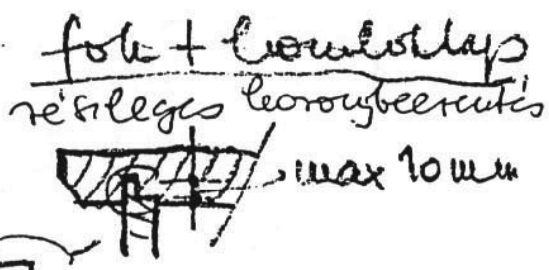 fok + homloklap
részleges horonybeeresztés
max 10 mm